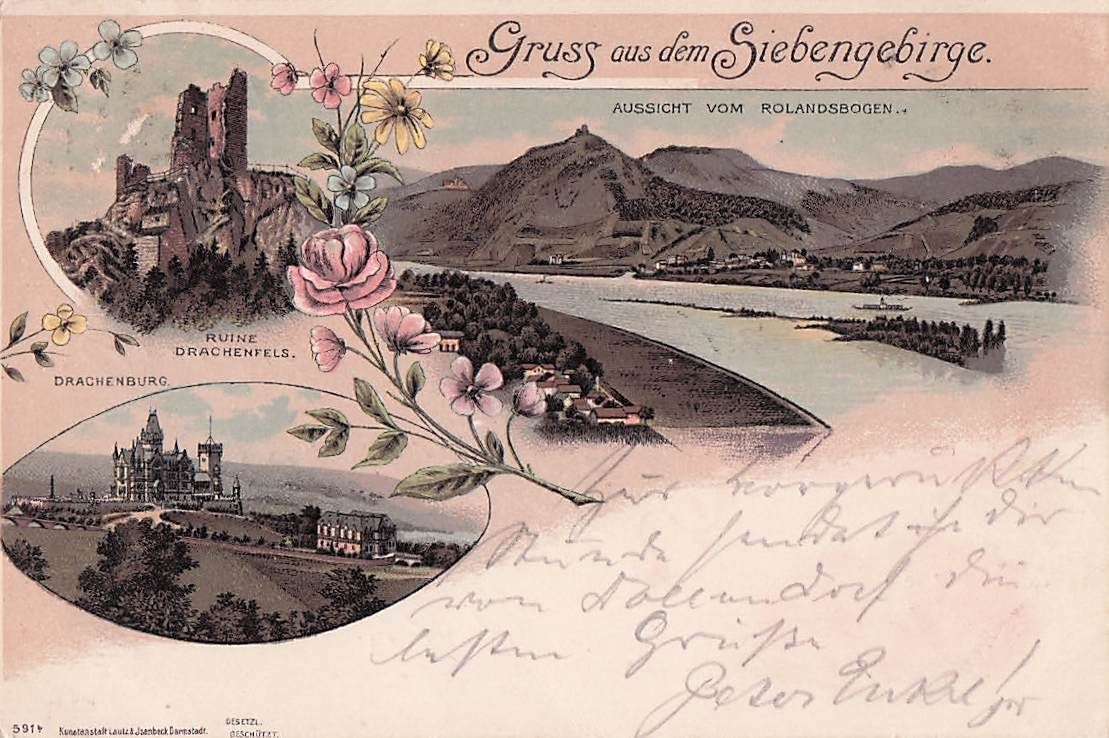 Gruss aus dem Siebengebirge.
AUSSICHT VOM ROLANDSBOGEN.
RUINE
DRACHENFELS.
DRACHENBURG.
Zur vorgerückten
Stunde sendet ich dir
von Dollendorf die
besten Grüße
Peter Enkel jr
5914 Kunstanstalt Lautz & Jsenbeck Darmstadt.
GESETZL.
GESCHÜTZT.